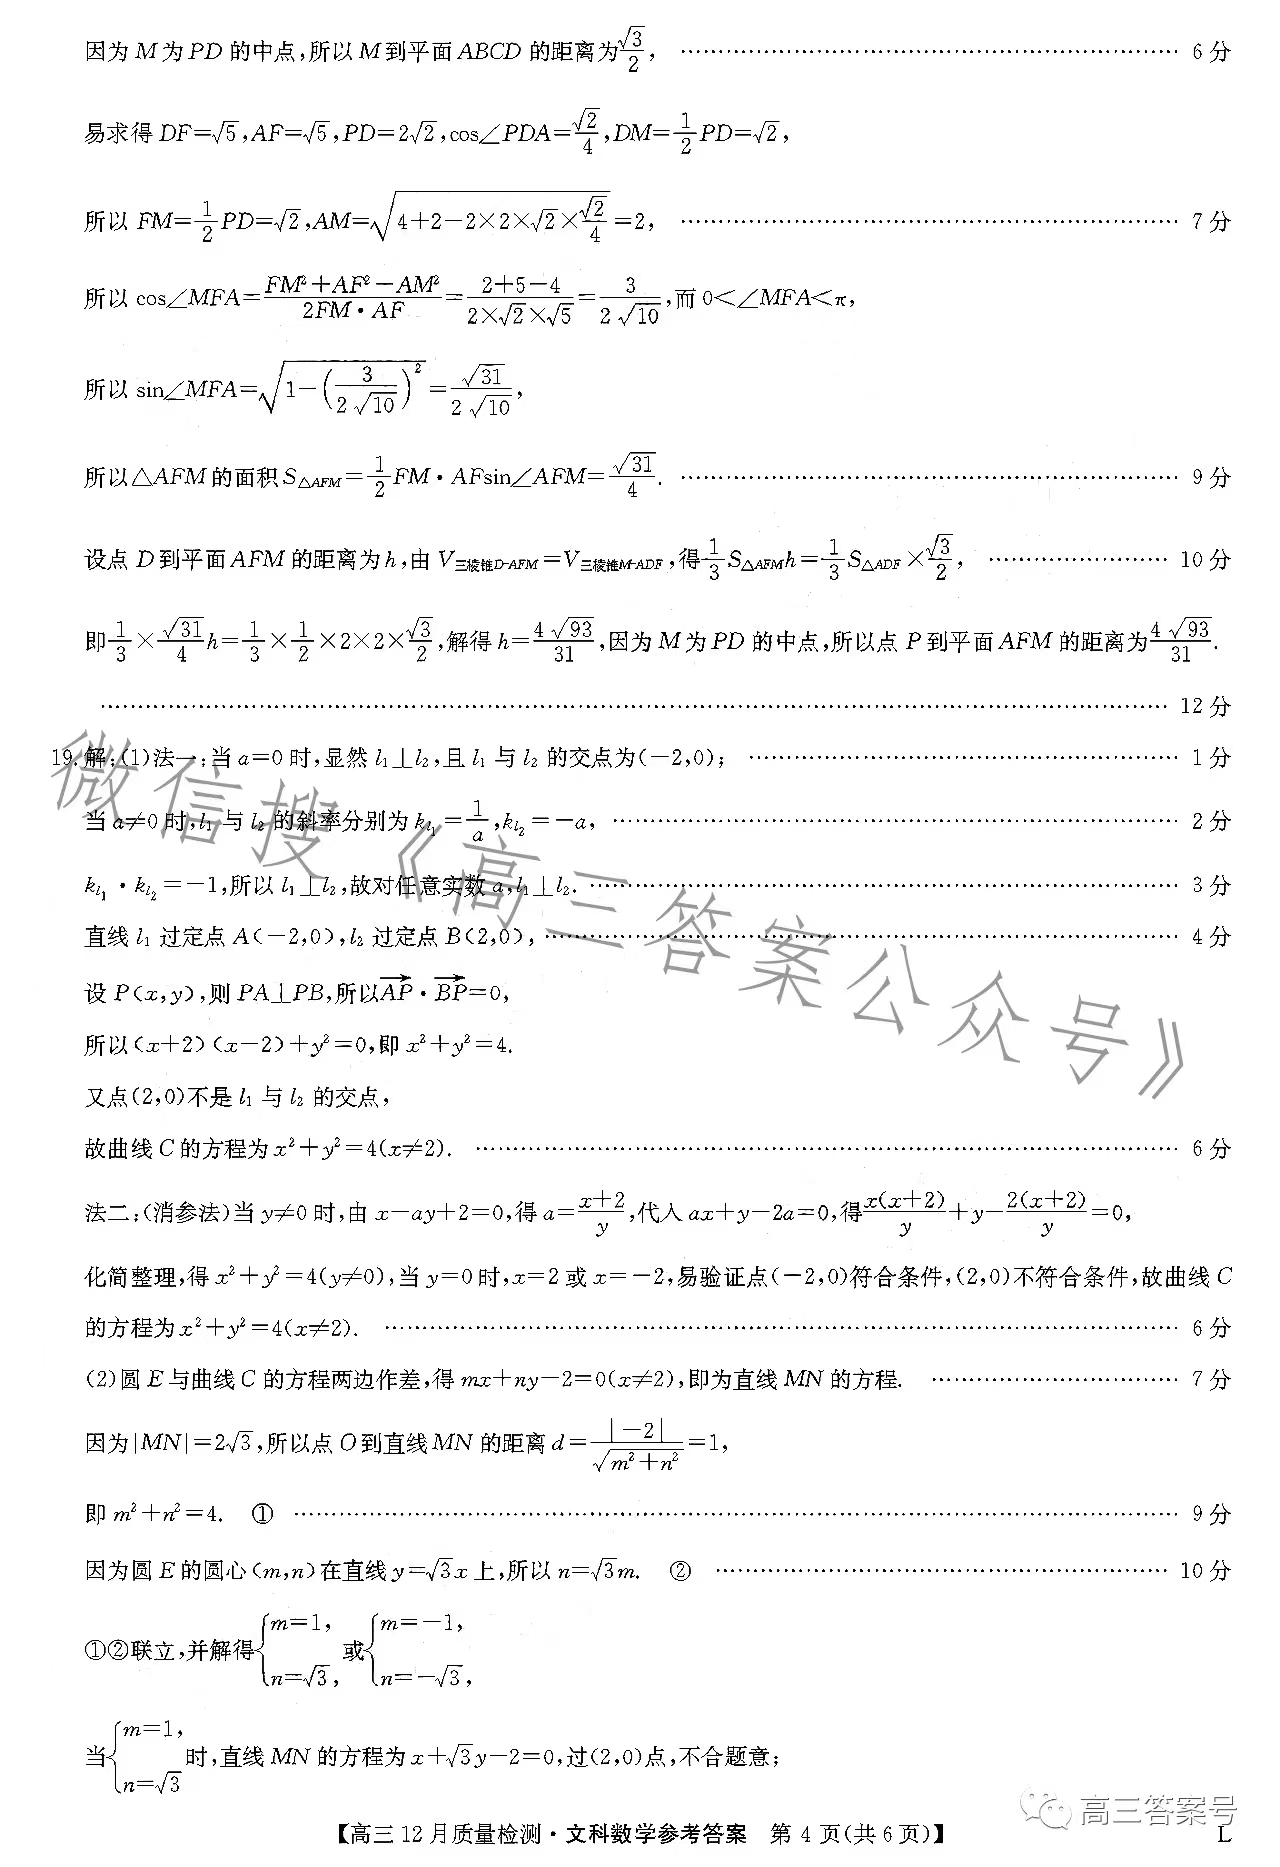 因为M为PD的中点,所以M到平面ABCD的距离为√3/2, …… 6分
易求得DF=√5,AF=√5,PD=2√2,cos∠PDA=√2/4,DM=1/2PD=√2,
所以FM=1/2PD=√2,AM=√(4+2-2×2×√2×√2/4)=2, …… 7分
所以cos∠MFA=(FM²+AF²-AM²)/(2FM·AF)=(2+5-4)/(2×√2×√5)=3/(2√10),而0<∠MFA<π,
所以sin∠MFA=√(1-(3/(2√10))²)=√31/(2√10),
所以△AFM的面积S△AFM=1/2FM·AFsin∠AFM=√31/4. …… 9分
设点D到平面AFM的距离为h,由V三棱锥D-AFM=V三棱锥M-ADF,得1/3S△AFMh=1/3S△ADF×√3/2, …… 10分
即1/3×√31/4h=1/3×1/2×2×2×√3/2,解得h=4√93/31,因为M为PD的中点,所以点P到平面AFM的距离为4√93/31.
…… 12分
19.解:(1)法一:当a=0时,显然l₁⊥l₂,且l₁与l₂的交点为(-2,0); …… 1分
当a≠0时,l₁与l₂的斜率分别为kl₁=1/a,kl₂=-a, …… 2分
kl₁·kl₂=-1,所以l₁⊥l₂,故对任意实数a,l₁⊥l₂. …… 3分
直线l₁过定点A(-2,0),l₂过定点B(2,0), …… 4分
设P(x,y),则PA⊥PB,所以AP→·BP→=0,
所以(x+2)(x-2)+y²=0,即x²+y²=4.
又点(2,0)不是l₁与l₂的交点,
故曲线C的方程为x²+y²=4(x≠2). …… 6分
法二:(消参法)当y≠0时,由x-ay+2=0,得a=(x+2)/y,代入ax+y-2a=0,得x(x+2)/y+y-2(x+2)/y=0,
化简整理,得x²+y²=4(y≠0),当y=0时,x=2或x=-2,易验证点(-2,0)符合条件,(2,0)不符合条件,故曲线C
的方程为x²+y²=4(x≠2). …… 6分
(2)圆E与曲线C的方程两边作差,得mx+ny-2=0(x≠2),即为直线MN的方程. …… 7分
因为|MN|=2√3,所以点O到直线MN的距离d=|-2|/√(m²+n²)=1,
即m²+n²=4. ① …… 9分
因为圆E的圆心(m,n)在直线y=√3x上,所以n=√3m. ② …… 10分
①②联立,并解得{m=1, n=√3,或{m=-1, n=-√3,
当{m=1, n=√3时,直线MN的方程为x+√3y-2=0,过(2,0)点,不合题意;
微信搜《高三答案公众号》
高三答案号
【高三12月质量检测·文科数学参考答案 第4页(共6页)】 L